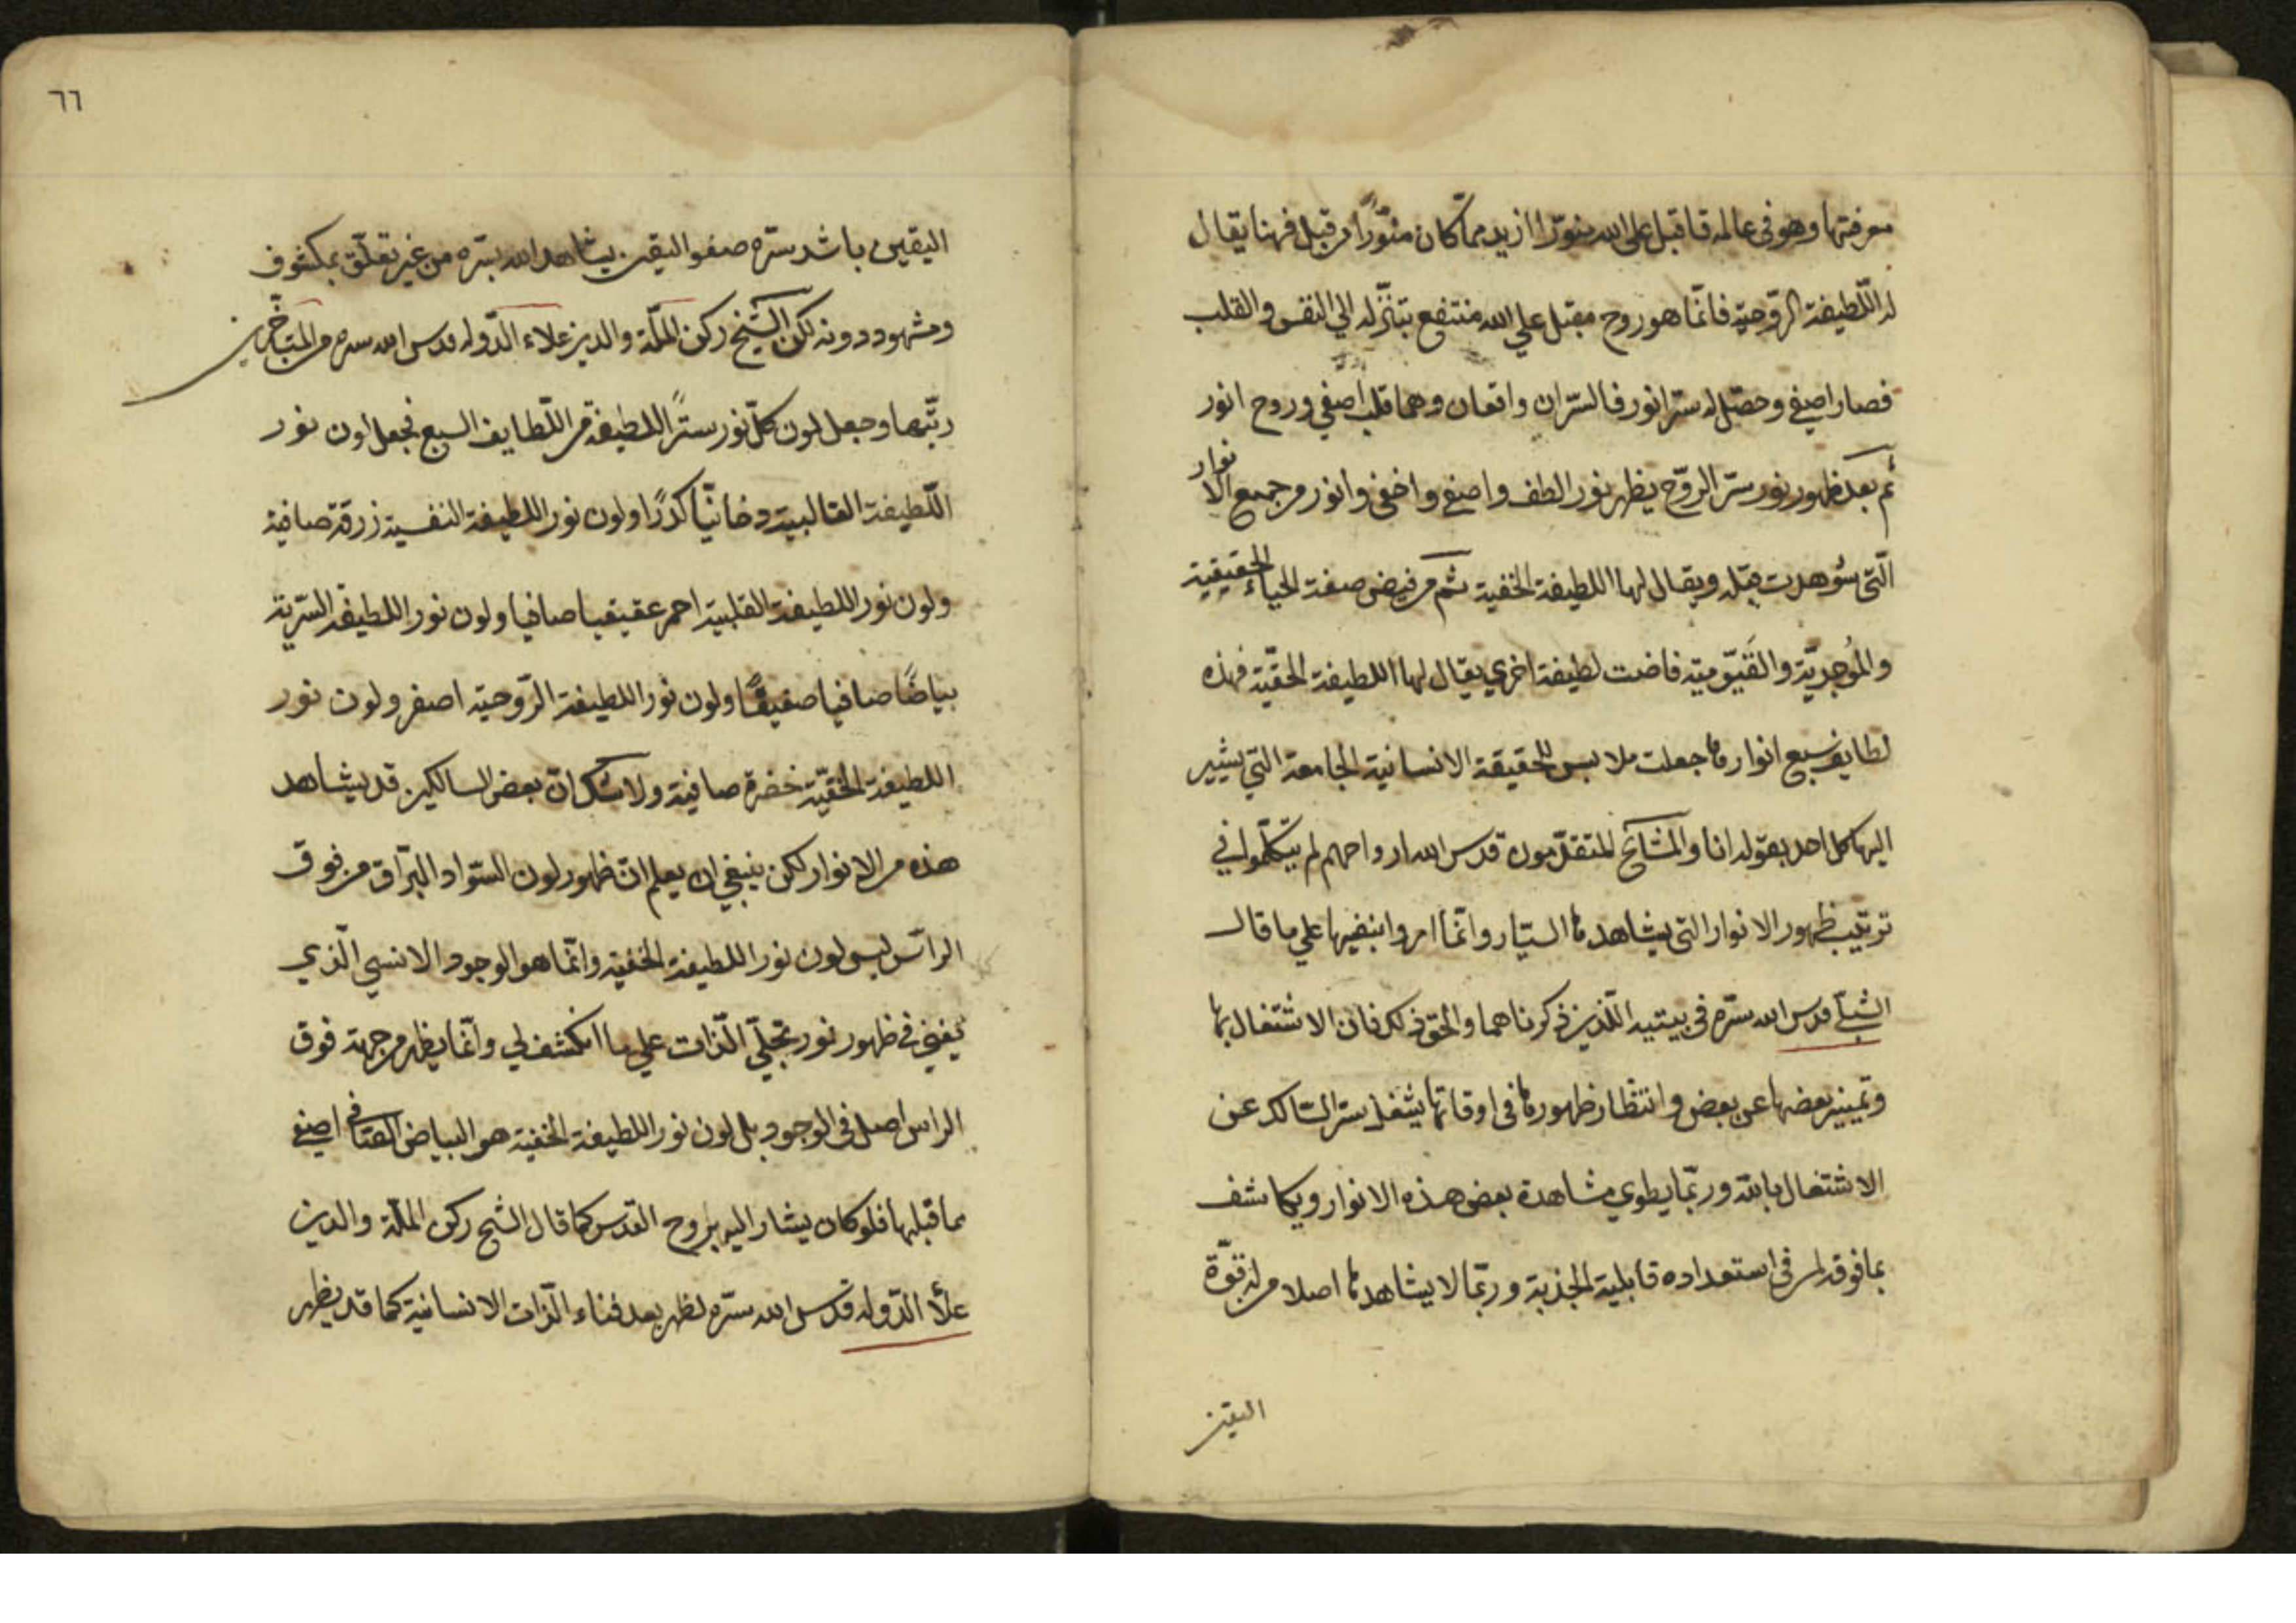 معرفتها وهو في عالمه فاقبل على الله منورا ازيد مما كان منوّرًا من قبل فهنا يقال
له اللّطيفة الرّوحيّة فانّما هو روح مقبل علي الله منتفع بتنزّله الي النفس والقلب
فصار اصفي وحصّل له سرّ انور فالسّران واقعان وهما قلب اصفي وروح انور
ثم بعد ظهور نور سرّ الروّح يظهر نور الطف واصفي واخفي وانور من جميع الانوار
الّتي شوهدت قبله ويقال لها اللطيفة الخفية ثم من فيض صفة الحياة الحقيقية
والمُوجديّة والقَيّوميّة فاضت لطيفة اخري يقال لها اللطيفة الحقّيّة فهذه
لطايف سبع انوارها جعلت ملابس للحقيقة الانسانية الجامعة التي يشير
اليها كل احد بقوله انا والمشائخ المتقدّمون قدس الله ارواحهم لم يتكلّموا في
ترتيب ظهور الانوار التي يشاهدها السيّار وانّما امروا بنفيها علي ما قال
الشبلي قدس الله سرّه في بيتيه اللّذين ذكرناهما والحق ذلك فان الاشتغال بها
وتمييز بعضها عن بعض وانتظار ظهورها في اوقاتها يشغل سرّ السّالك عن
الاشتغال بالله وربّما يطوي مشاهدة بعض هذه الانوار ويكاشف
بما فوقه لمن في استعداده قابلية الجذبة وربّما لا يشاهدها اصلا من له قوّة
اليقين
٦٦
اليقين باشد سرّه صفو اليقين يشاهد الله بسّره من غير تعلّق بمكشوف
ومشهود دونه لكن الشّيخ ركن الملّة والدين علاء الدّوله قدس الله سره من المتأخّرين
رتّبها وجعل لون كلّ نور سترًا للطيفة من اللّطايف السبع فجعل لون نور
اللّطيفة القالبية دخانيّا كدرًا ولون نور اللطيفة النفسية زرقة صافية
ولون نور اللطيفة القلبية احمر عقيقيا صافيا ولون نور اللطيفة السّرية
بياضًا صافيا صفيقًا ولون نور اللطيفة الرّوحية اصفر ولون نور
اللطيفة الحقّيّة خضرة صافية ولا شك انّ بعض السالكين قد يشاهد
هذه من الانوار لكن ينبغي ان يعلم انّ ظهور لون السّواد البرّاق من فوق
الرأس ليس لون نور اللطيفة الخفيّة وانّما هو الوجود الانسي الّذي
يفني في ظهور نور تجلّي الّذات علي ما انكشف لي وانّما يظهر من جهة فوق
الراس اصل في الوجود بل لون نور اللطيفة الخفية هو البياض الصّافي اصفي
مما قبلها فلو كان يشار اليه بروح القدس كما قال الشيخ ركن الملّة والدين
علأ الدّوله قدس الله سرّه لظهر بعد فناء الّذات الانسانيّة كما قد يظهر